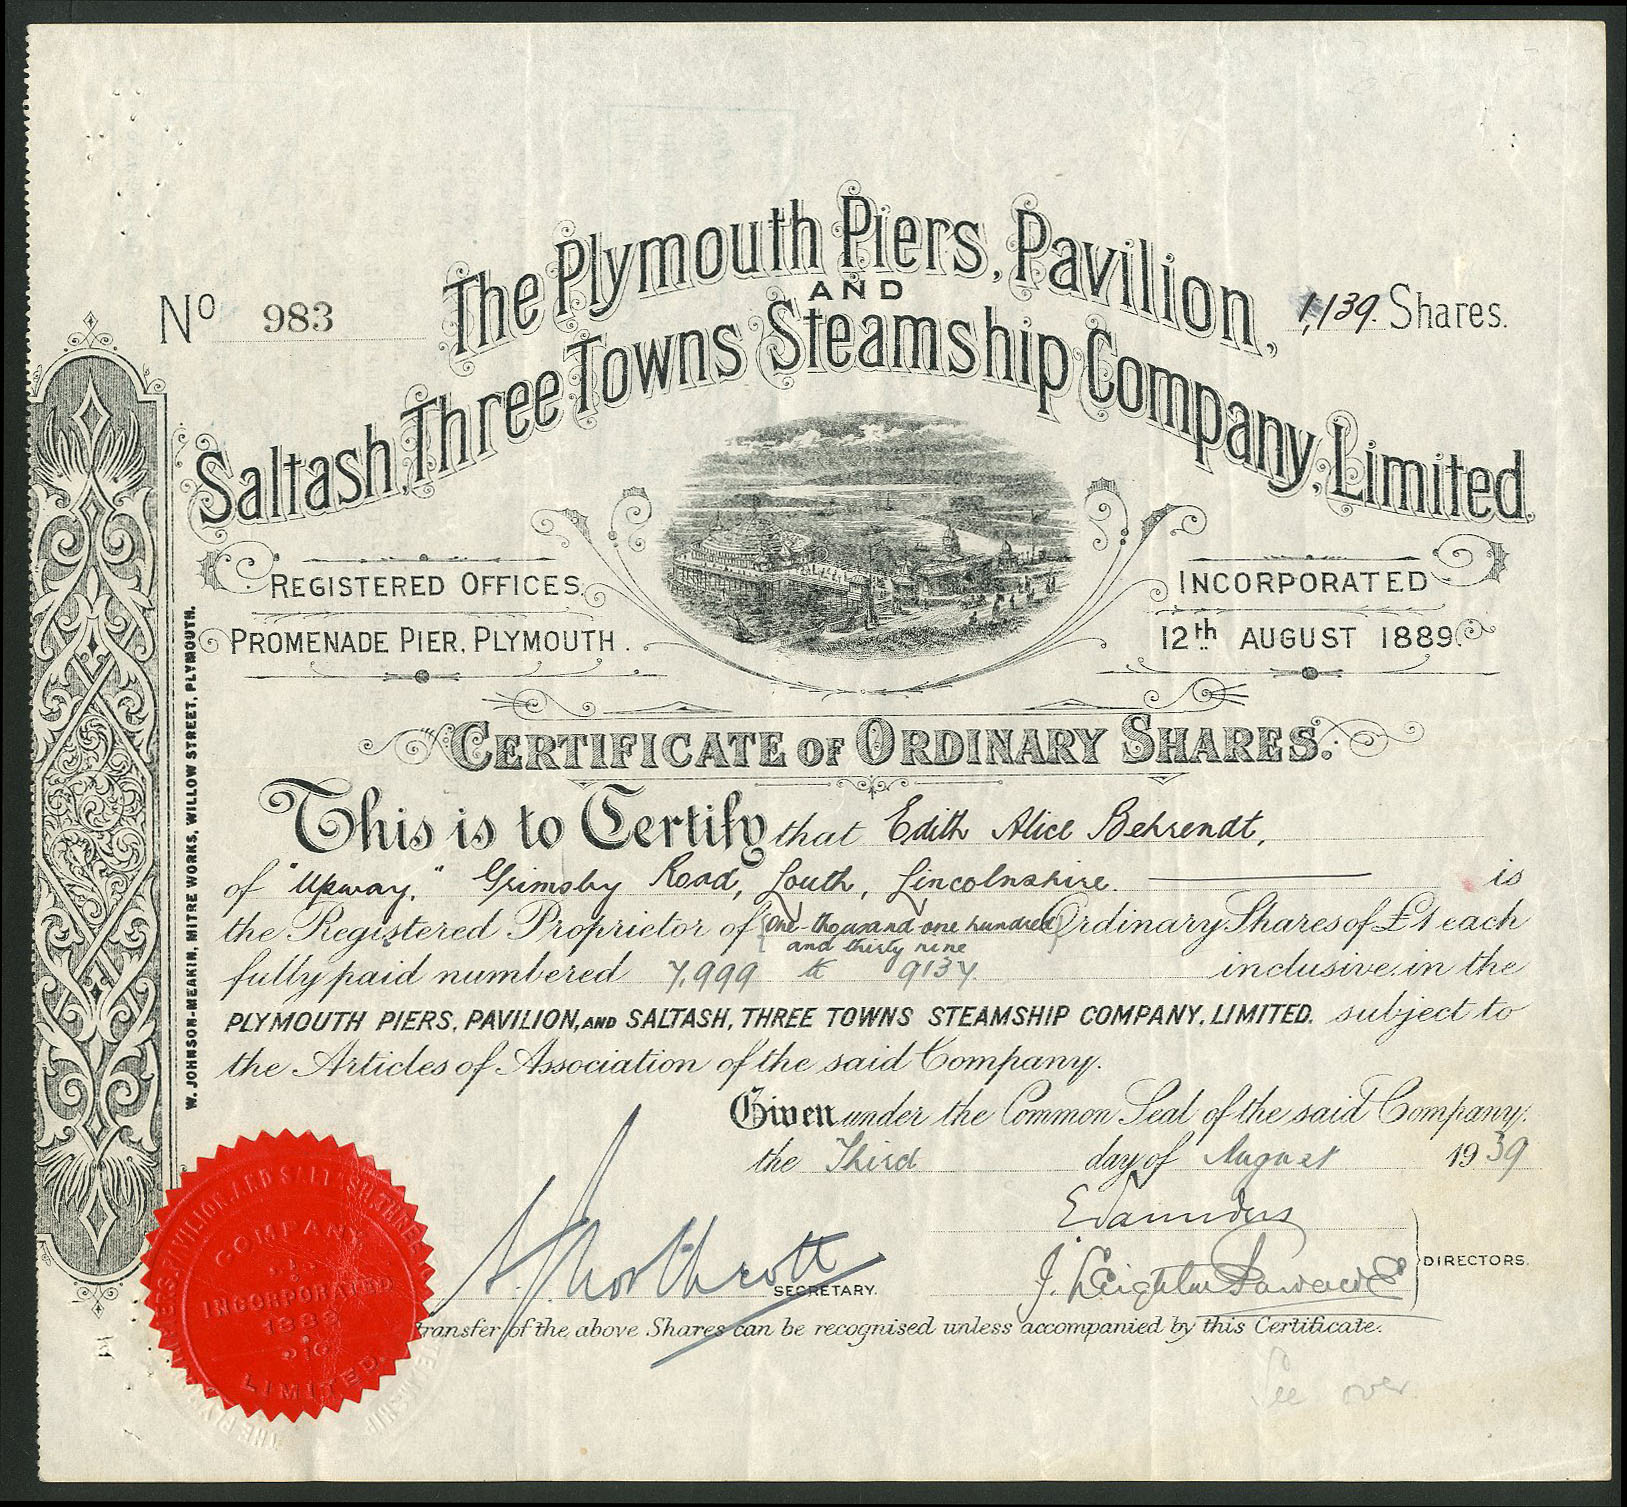 The Plymouth Piers, Pavilion,
AND
Saltash, Three Towns Steamship Company, Limited.
No 983
1,139. Shares.
REGISTERED OFFICES.
PROMENADE PIER, PLYMOUTH.
INCORPORATED
12th AUGUST 1889.
CERTIFICATE OF ORDINARY SHARES.
This is to Certify that Edith Alice Behrendt,
of "Upway," Grimsby Road, Louth, Lincolnshire. is
the Registered Proprietor of (One thousand one hundred and thirty nine) Ordinary Shares of £1 each
fully paid numbered 7,999 to 9137. inclusive in the
PLYMOUTH PIERS, PAVILION, AND SALTASH, THREE TOWNS STEAMSHIP COMPANY, LIMITED. subject to
the Articles of Association of the said Company.
Given under the Common Seal of the said Company,
the Third day of August 1939
E Saunders
DIRECTORS.
SECRETARY.
transfer of the above Shares can be recognised unless accompanied by this Certificate.
See over
W. JOHNSON-MEAKIN, MITRE WORKS, WILLOW STREET, PLYMOUTH.
PAVILION AND SALTASH, THREE
COMPANY
INCORPORATED
1889
LIMITED